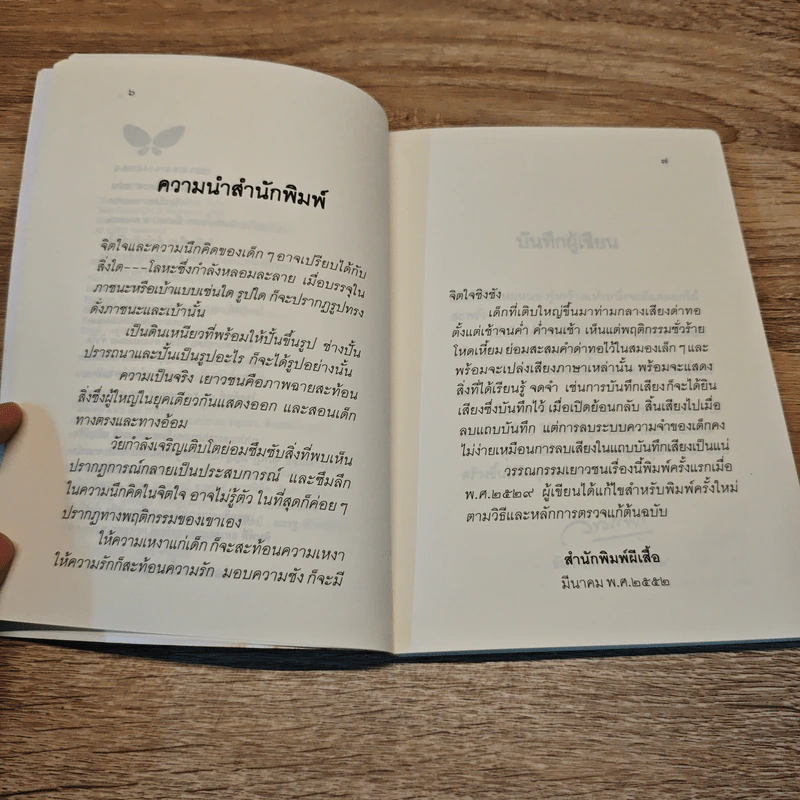 ๖
ความนำสำนักพิมพ์
จิตใจและความนึกคิดของเด็ก ๆ อาจเปรียบได้กับ
สิ่งใด---โลหะซึ่งกำลังหลอมละลาย เมื่อบรรจุใน
ภาชนะหรือเบ้าแบบเช่นใด รูปใด ก็จะปรากฏรูปทรง
ดั่งภาชนะและเบ้านั้น
เป็นดินเหนียวที่พร้อมให้ปั้นขึ้นรูป ช่างปั้น
ปรารถนาและปั้นเป็นรูปอะไร ก็จะได้รูปอย่างนั้น
ความเป็นจริง เยาวชนคือภาพฉายสะท้อน
สิ่งซึ่งผู้ใหญ่ในยุคเดียวกันแสดงออก และสอนเด็ก
ทางตรงและทางอ้อม
วัยกำลังเจริญเติบโตย่อมซึมซับสิ่งที่พบเห็น
ปรากฏการณ์กลายเป็นประสบการณ์ และซึมลึก
ในความนึกคิดในจิตใจ อาจไม่รู้ตัว ในที่สุดก็ค่อย ๆ
ปรากฏทางพฤติกรรมของเขาเอง
ให้ความเหงาแก่เด็ก ก็จะสะท้อนความเหงา
ให้ความรักก็สะท้อนความรัก มอบความชัง ก็จะมี
๗
บันทึกผู้เขียน
จิตใจชิงชัง
เด็กที่เติบใหญ่ขึ้นมาท่ามกลางเสียงด่าทอ
ตั้งแต่เช้าจนค่ำ ค่ำจนเช้า เห็นแต่พฤติกรรมชั่วร้าย
โหดเหี้ยม ย่อมสะสมคำด่าทอไว้ในสมองเล็ก ๆ และ
พร้อมจะเปล่งเสียงภาษาเหล่านั้น พร้อมจะแสดง
สิ่งที่ได้เรียนรู้ จดจำ เช่นการบันทึกเสียงก็จะได้ยิน
เสียงซึ่งบันทึกไว้ เมื่อเปิดย้อนกลับ สิ้นเสียงไปเมื่อ
ลบแถบบันทึก แต่การลบระบบความจำของเด็กคง
ไม่ง่ายเหมือนการลบเสียงในแถบบันทึกเสียงเป็นแน่
วรรณกรรมเยาวชนเรื่องนี้พิมพ์ครั้งแรกเมื่อ
พ.ศ.๒๕๒๙ ผู้เขียนได้แก้ไขสำหรับพิมพ์ครั้งใหม่
ตามวิธีและหลักการตรวจแก้ต้นฉบับ
สำนักพิมพ์ผีเสื้อ
มีนาคม พ.ศ.๒๕๕๒